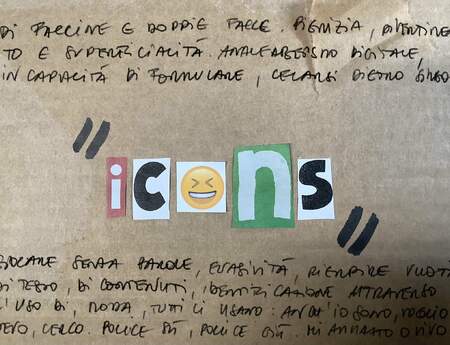 DI FACCINE E DOPPIE FACCE. PIGRIZIA,
TO E SUPERFICIALITÀ. ANALFABETISMO DIGITALE,
INCAPACITÀ DI FORMULARE, CELARSI DIETRO
"icons"
GIOCARE SENZA PAROLE, EVASIVITÀ, RIEMPIRE VUOTI
DI TESTO, DI CONTENUTI, IDENTIFICAZIONE ATTRAVERSO
L'USO DI, MODA, TUTTI LI USANO: ANCH'IO SONO, VOGLIO
CERCO. POLLICE SÙ, POLLICE GIÙ. MI AMMAZZO O VIVO